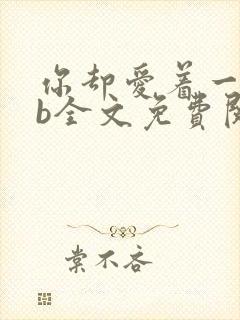 你却爱着一
b全文免费阅
棠不吝